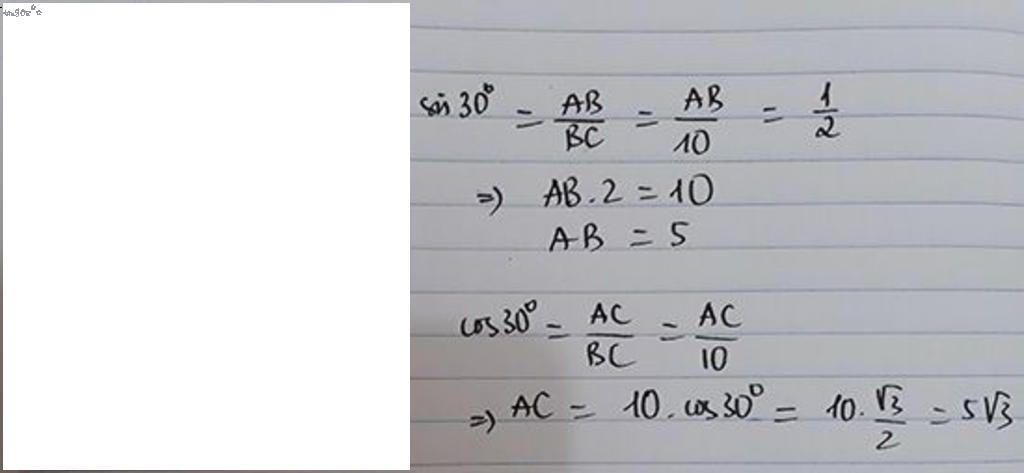 sin 30° = AB/BC = AB/10 = 1/2
=) AB . 2 = 10
AB = 5
cos 30° = AC/BC = AC/10
=) AC = 10 . cos 30° = 10 . √3/2 = 5√3